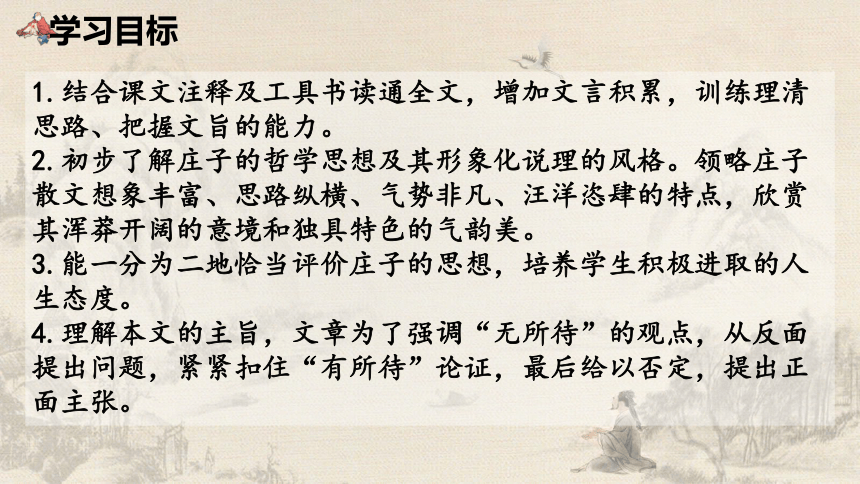 学习目标
1.结合课文注释及工具书读通全文，增加文言积累，训练理清
思路、把握文旨的能力。
2.初步了解庄子的哲学思想及其形象化说理的风格。领略庄子
散文想象丰富、思路纵横、气势非凡、汪洋恣肆的特点，欣赏
其浑莽开阔的意境和独具特色的气韵美。
3.能一分为二地恰当评价庄子的思想，培养学生积极进取的人
生态度。
4.理解本文的主旨，文章为了强调“无所待”的观点，从反面
提出问题，紧紧扣住“有所待”论证，最后给以否定，提出正
面主张。